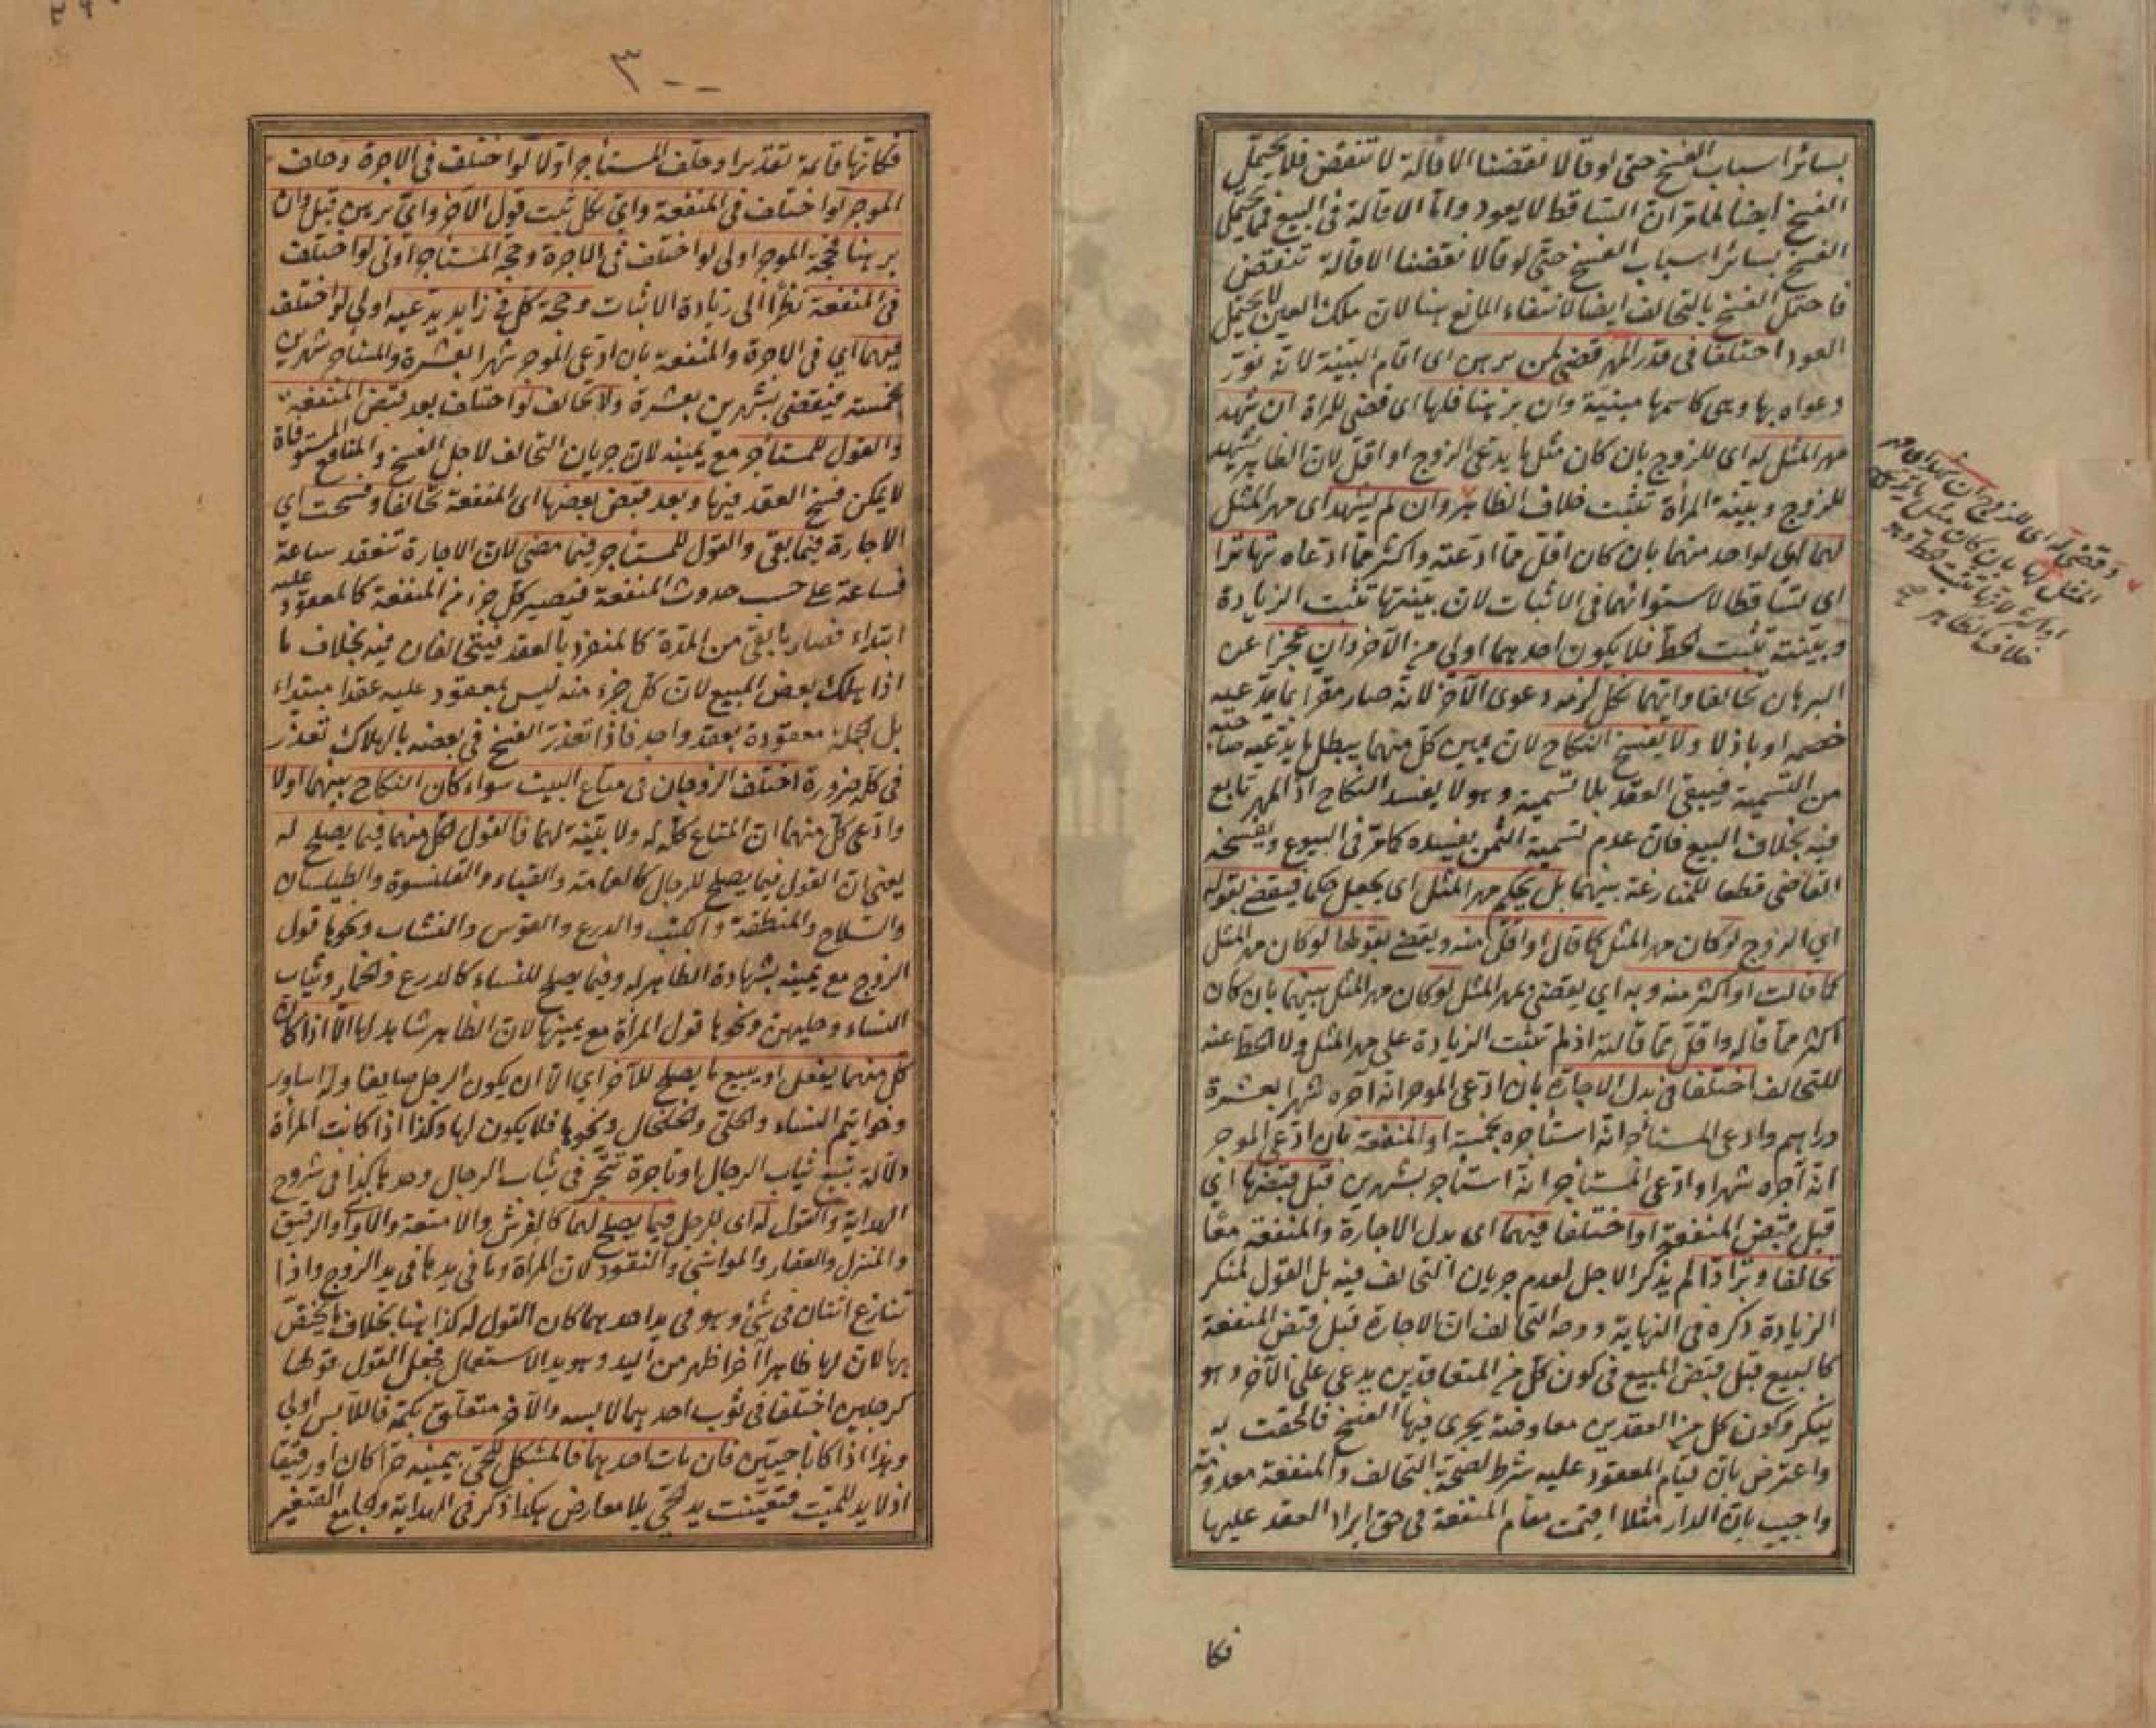 بسائر اسباب الفسخ حتى لو قالا نقضنا الاقالة لا تنتقض فلا يحتمل
الفسخ ايضا لما مر ان الساقط لا يعود واما الاقالة في البيع فيحتمل
الفسخ بسائر اسباب الفسخ حتى لو قالا نقضنا الاقالة تنتقض
فاحتمل الفسخ بالتحالف ايضا لانتفاء المانع هنا لان ملك العين لا يحتمل
العود اختلفا في قدر المهر قضى لمن برهن اى اقام البينة لانه نور
دعواه بها وهى كاسمها مبينة وان برهنا فلها اى قضى للمراة ان شهد
مهر المثل له اى للزوج بان كان مثل ما يدعى الزوج او اقل لان الظاهر يشهد
للزوج وبينة المرأة تثبت خلاف الظاهر وان لم يشهد اى مهر المثل
لهما اى لواحد منهما بان كان اقل مما ادعته واكثر مما ادعاه تهاترا
اى تساقطا لاستوائهما في الاثبات لان بينتها تثبت الزيادة
وبينته تثبت الحط فلا يكون احدهما اولى من الآخر وان عجزا عن
البرهان تحالفا وايهما نكل لزمه دعوى الآخر لانه صار مقرا بما يدعيه
خصمه او باذلا ولا يفسخ النكاح لان يمين كل منهما يبطل ما يدعيه صاحبه
من التسمية فيبقى العقد بلا تسمية وهو لا يفسد النكاح اذ المهر تابع
فيه بخلاف البيع فان عدم تسمية الثمن يفسده كما مر في البيوع ويفسخه
القاضى قطعا للمنازعة بينهما بل يحكم مهر المثل اى يجعل حكما فيقضى بقوله
اى الزوج لو كان مهر المثل كما قال او اقل منه ويقضى بقولها لو كان مهر المثل
كما قالت او اكثر منه وبه اى يقضى بمهر المثل لو كان مهر المثل بينهما بان كان
اكثر مما قاله واقل مما قالته اذ لم تثبت الزيادة على مهر المثل ولا الحط عنه
للتحالف اختلفا في بدل الاجارة بان ادعى الموجر انه آجره شهرا بعشرة
دراهم وادعى المستأجر انه استأجره بخمسة او المنفعة بان ادعى الموجر
انه آجره شهرا وادعى المستأجر انه استأجر بشهرين قبل قبضها اى
قبل قبض المنفعة او اختلفا فيهما اى بدل الاجارة والمنفعة معا
تحالفا وترادا لم يذكر الاجل لعدم جريان التحالف فيه بل القول لمنكر
الزيادة ذكره في النهاية ووجه التحالف ان الاجارة قبل قبض المنفعة
كالبيع قبل قبض المبيع في كون كل من المتعاقدين يدعى على الآخر وهو
ينكر وكون كل من العقدين معاوضة يجرى فيها الفسخ فالحقت به
واعترض بان قيام المعقود عليه شرط لصحة التحالف والمنفعة معدومة
واجيب بان الدار مثلا اقيمت مقام المنفعة في حق ايراد العقد عليها
فكا
وقضى له اى للزوج ان شهد اى مهر
المثل لها بان كان مثل ما تدعيه
او اكثر لانها تثبت الحط وهو
خلاف الظاهر صح
٣٠٠
فكانها قائمة تقديرا وحلف المستأجر اولا لو اختلف في الاجرة وحلف
الموجر لو اختلف في المنفعة واى نكل ثبت قول الآخر واى برهن قبل وان
برهنا فحجة الموجر اولى لو اختلف في الاجرة وحجة المستأجر اولى لو اختلف
في المنفعة نظرا الى زيادة الاثبات وحجة كل في زايد يدعيه اولى لو اختلف
فيهما اى في الاجرة والمنفعة بان ادعى الموجر شهرا بعشرة والمستأجر شهرين
بخمسة فيقضى بشهرين بعشرة ولا تحالف لو اختلف بعد قبض المنفعة
والقول للمستأجر مع يمينه لان جريان التحالف لاجل الفسخ والمنافع المستوفاة
لا يمكن فسخ العقد فيها وبعد قبض بعضها اى المنفعة تحالفا وفسخت اى
الاجارة فيما بقى والقول للمستأجر فيما مضى لان الاجارة تنعقد ساعة
فساعة على حسب حدوث المنفعة فيصير كل جزء من المنفعة كالمعقود عليه
ابتداء فصار ما بقى من المدة كالمنفرد بالعقد فيتحالفان فيه بخلاف ما
اذا هلك بعض المبيع لان كل جزء منه ليس بمعقود عليه عقدا مبتداء
بل الجملة معقودة بعقد واحد فاذا تعذر الفسخ في بعضه بالهلاك تعذر
في كله ضرورة اختلف الزوجان في متاع البيت سواء كان النكاح بينهما اولا
وادعى كل منهما ان المتاع كله له ولا بينة لهما فالقول لكل منهما فيما يصلح له
يعنى ان القول فيما يصلح للرجال كالعمامة والقباء والقلنسوة والطيلسان
والسلاح والمنطقة والكتب والدرع والقوس والنشاب ونحوها قول
الزوج مع يمينه بشهادة الظاهر له وفيما يصلح للنساء كالدرع والخمار وثياب
النساء وحليهن ونحوها قول المرأة مع يمينها لان الظاهر شاهد لها الا اذا كان
كل منهما يفعل او يبيع ما يصلح للآخر اى الا ان يكون الرجل صايغا وله اساور
وخواتيم النساء والحلى والخلخال ونحوها فلا يكون لها وكذا اذا كانت المرأة
دلالة تبيع ثياب الرجال او تاجرة تتجر في ثياب الرجال وحدها كذا في شروح
الهداية والقول له اى للرجل فيما يصلح لهما كالفرش والامتعة والاوانى والرقيق
والمنزل والعقار والمواشى والنقود لان المرأة وما في يدها في يد الزوج واذا
تنازع اثنان في شئ وهو في يد احدهما كان القول له كذا هنا بخلاف ما يختص
بها لان لها ظاهرا آخر اظهر من اليد وهو يد الاستعمال فجعل القول قولها
كرجلين اختلفا في ثوب احدهما لابسه والآخر متعلق بكمه فاللابس اولى
وهذا اذا كانا حيين فان مات احدهما فالمشكل للحى بيمينه حرا كان او رقيقا
اذ لا يد للميت فتعينت يد الحى بلا معارض هكذا ذكر في الهداية والجامع الصغير